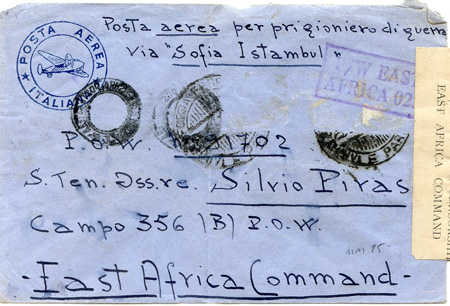 Posta aerea per prigioniero di guerra
via "Sofia Istambul"
POSTA AEREA
ITALIA
P/W EAST
AFRICA 02
P.O.W. 702
S. Ten. Oss.re. Silvio Piras
Campo 356 (B) P.O.W.
- East Africa Command -
EAST AFRICA COMMAND